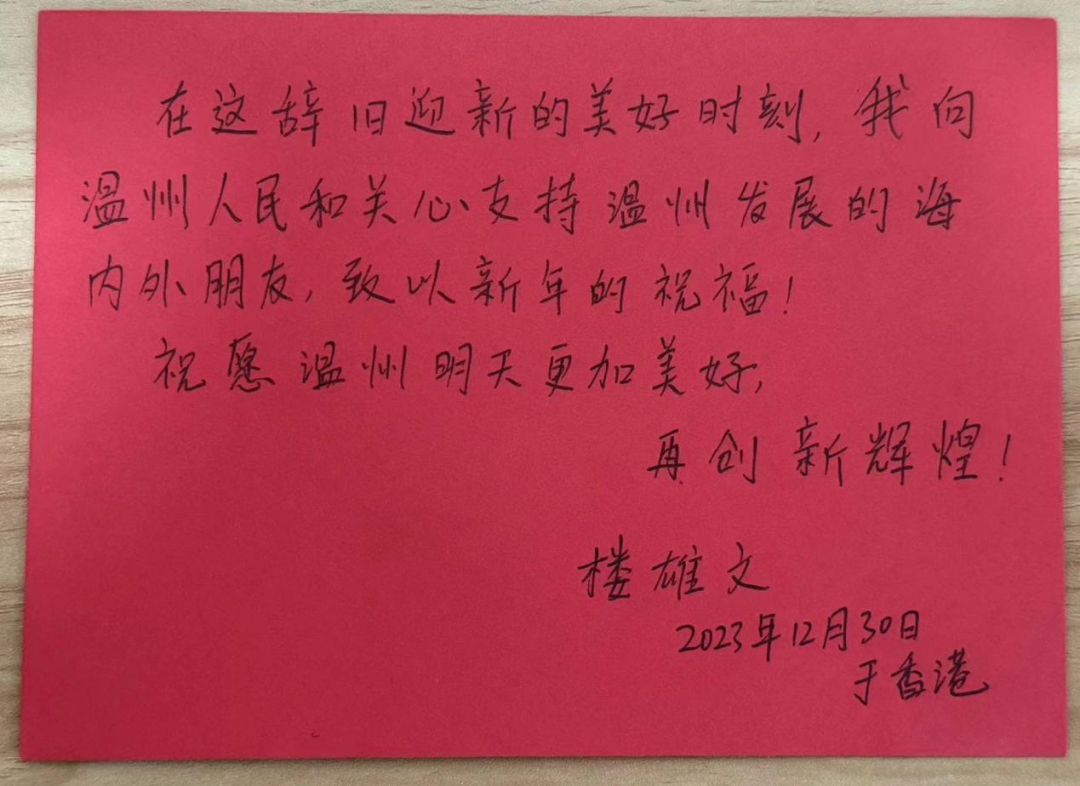 在这辞旧迎新的美好时刻,我向
温州人民和关心支持温州发展的海
内外朋友,致以新年的祝福!
祝愿温州明天更加美好,
再创新辉煌!
楼雄文
2023年12月30日
于香港